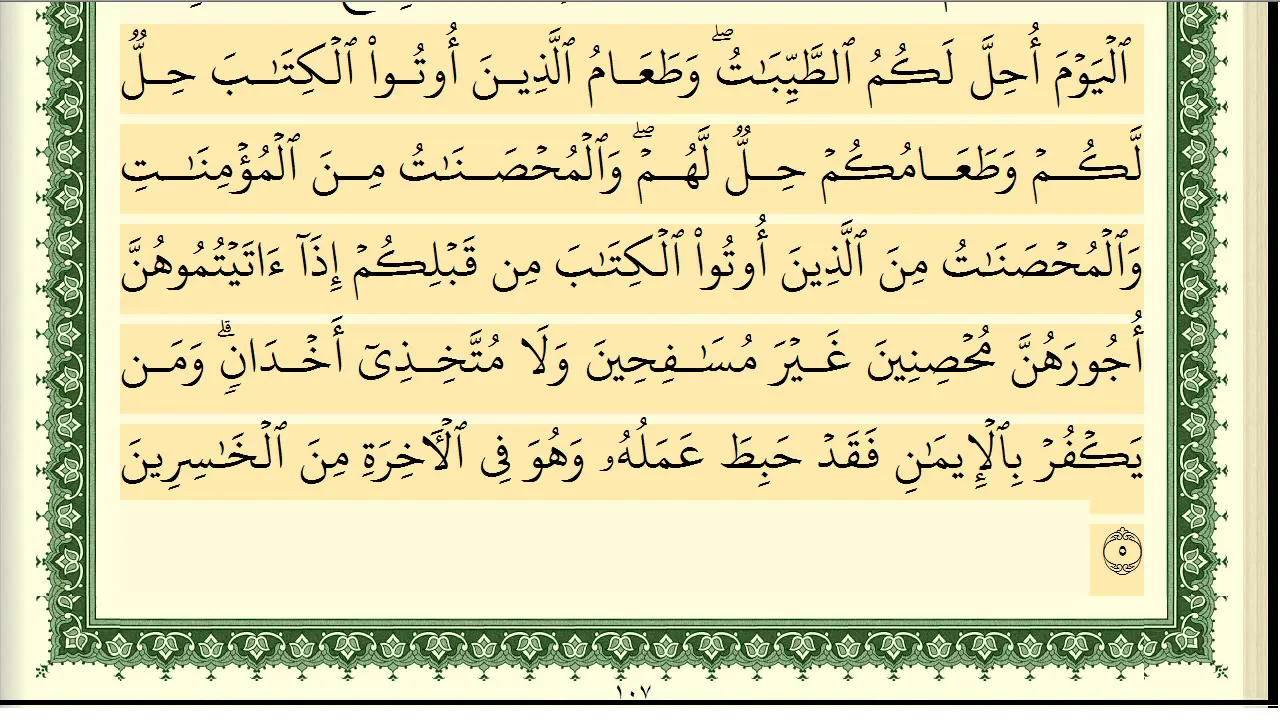 ٱلْيَوْمَ أُحِلَّ لَكُمُ ٱلطَّيِّبَـٰتُ ۖ وَطَعَامُ ٱلَّذِينَ أُوتُوا۟ ٱلْكِتَـٰبَ حِلٌّ
لَّكُمْ وَطَعَامُكُمْ حِلٌّ لَّهُمْ ۖ وَٱلْمُحْصَنَـٰتُ مِنَ ٱلْمُؤْمِنَـٰتِ
وَٱلْمُحْصَنَـٰتُ مِنَ ٱلَّذِينَ أُوتُوا۟ ٱلْكِتَـٰبَ مِن قَبْلِكُمْ إِذَآ ءَاتَيْتُمُوهُنَّ
أُجُورَهُنَّ مُحْصِنِينَ غَيْرَ مُسَـٰفِحِينَ وَلَا مُتَّخِذِىٓ أَخْدَانٍ ۗ وَمَن
يَكْفُرْ بِٱلْإِيمَـٰنِ فَقَدْ حَبِطَ عَمَلُهُۥ وَهُوَ فِى ٱلْـَٔاخِرَةِ مِنَ ٱلْخَـٰسِرِينَ
٥
١٠٧